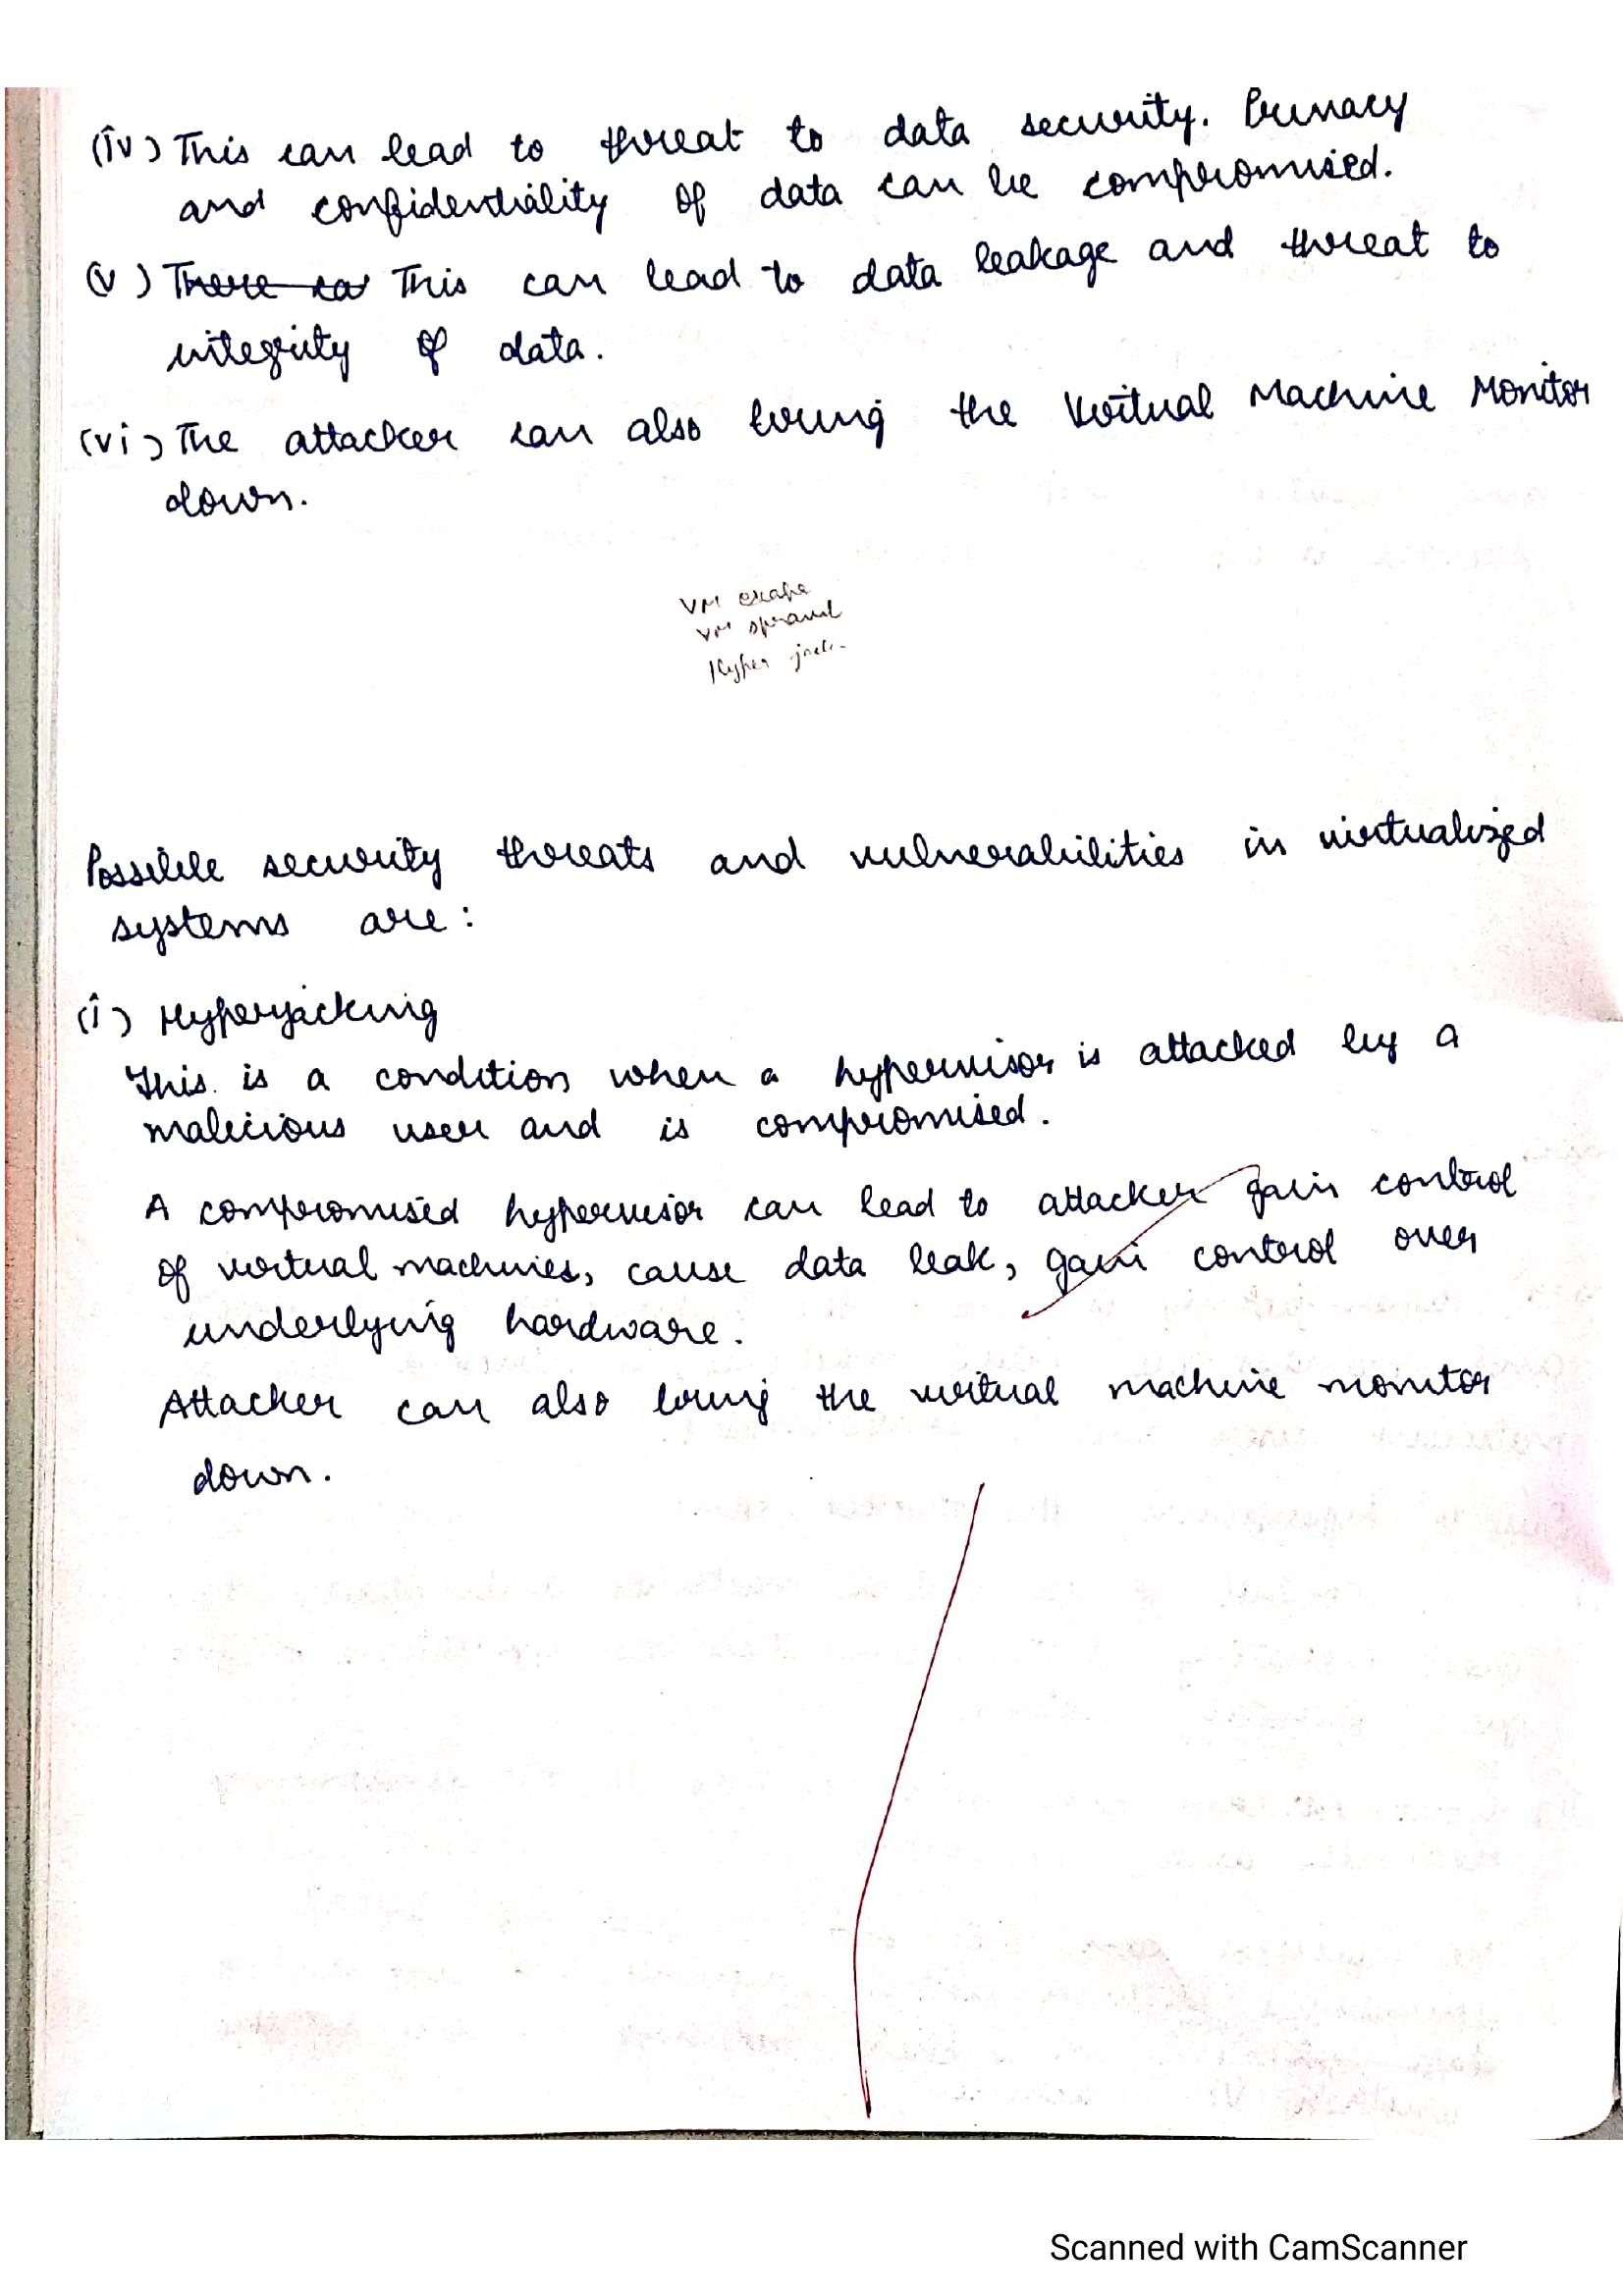 (iv) This can lead to threat to data security. Privacy
and confidentiality of data can be compromised.
(v) There ca This can lead to data leakage and threat to
integrity of data.
(vi) The attacker can also bring the Virtual Machine Monitor
down.
VM escape
VM sprawl
Hyper jack
Possible security threats and vulnerabilities in virtualized
systems are:
(i) Hyperjacking
This is a condition when a hypervisor is attacked by a
malicious user and is compromised.
A compromised hypervisor can lead to attacker gain control
of virtual machines, cause data leak, gain control over
underlying hardware.
Attacker can also bring the virtual machine monitor
down.
Scanned with CamScanner